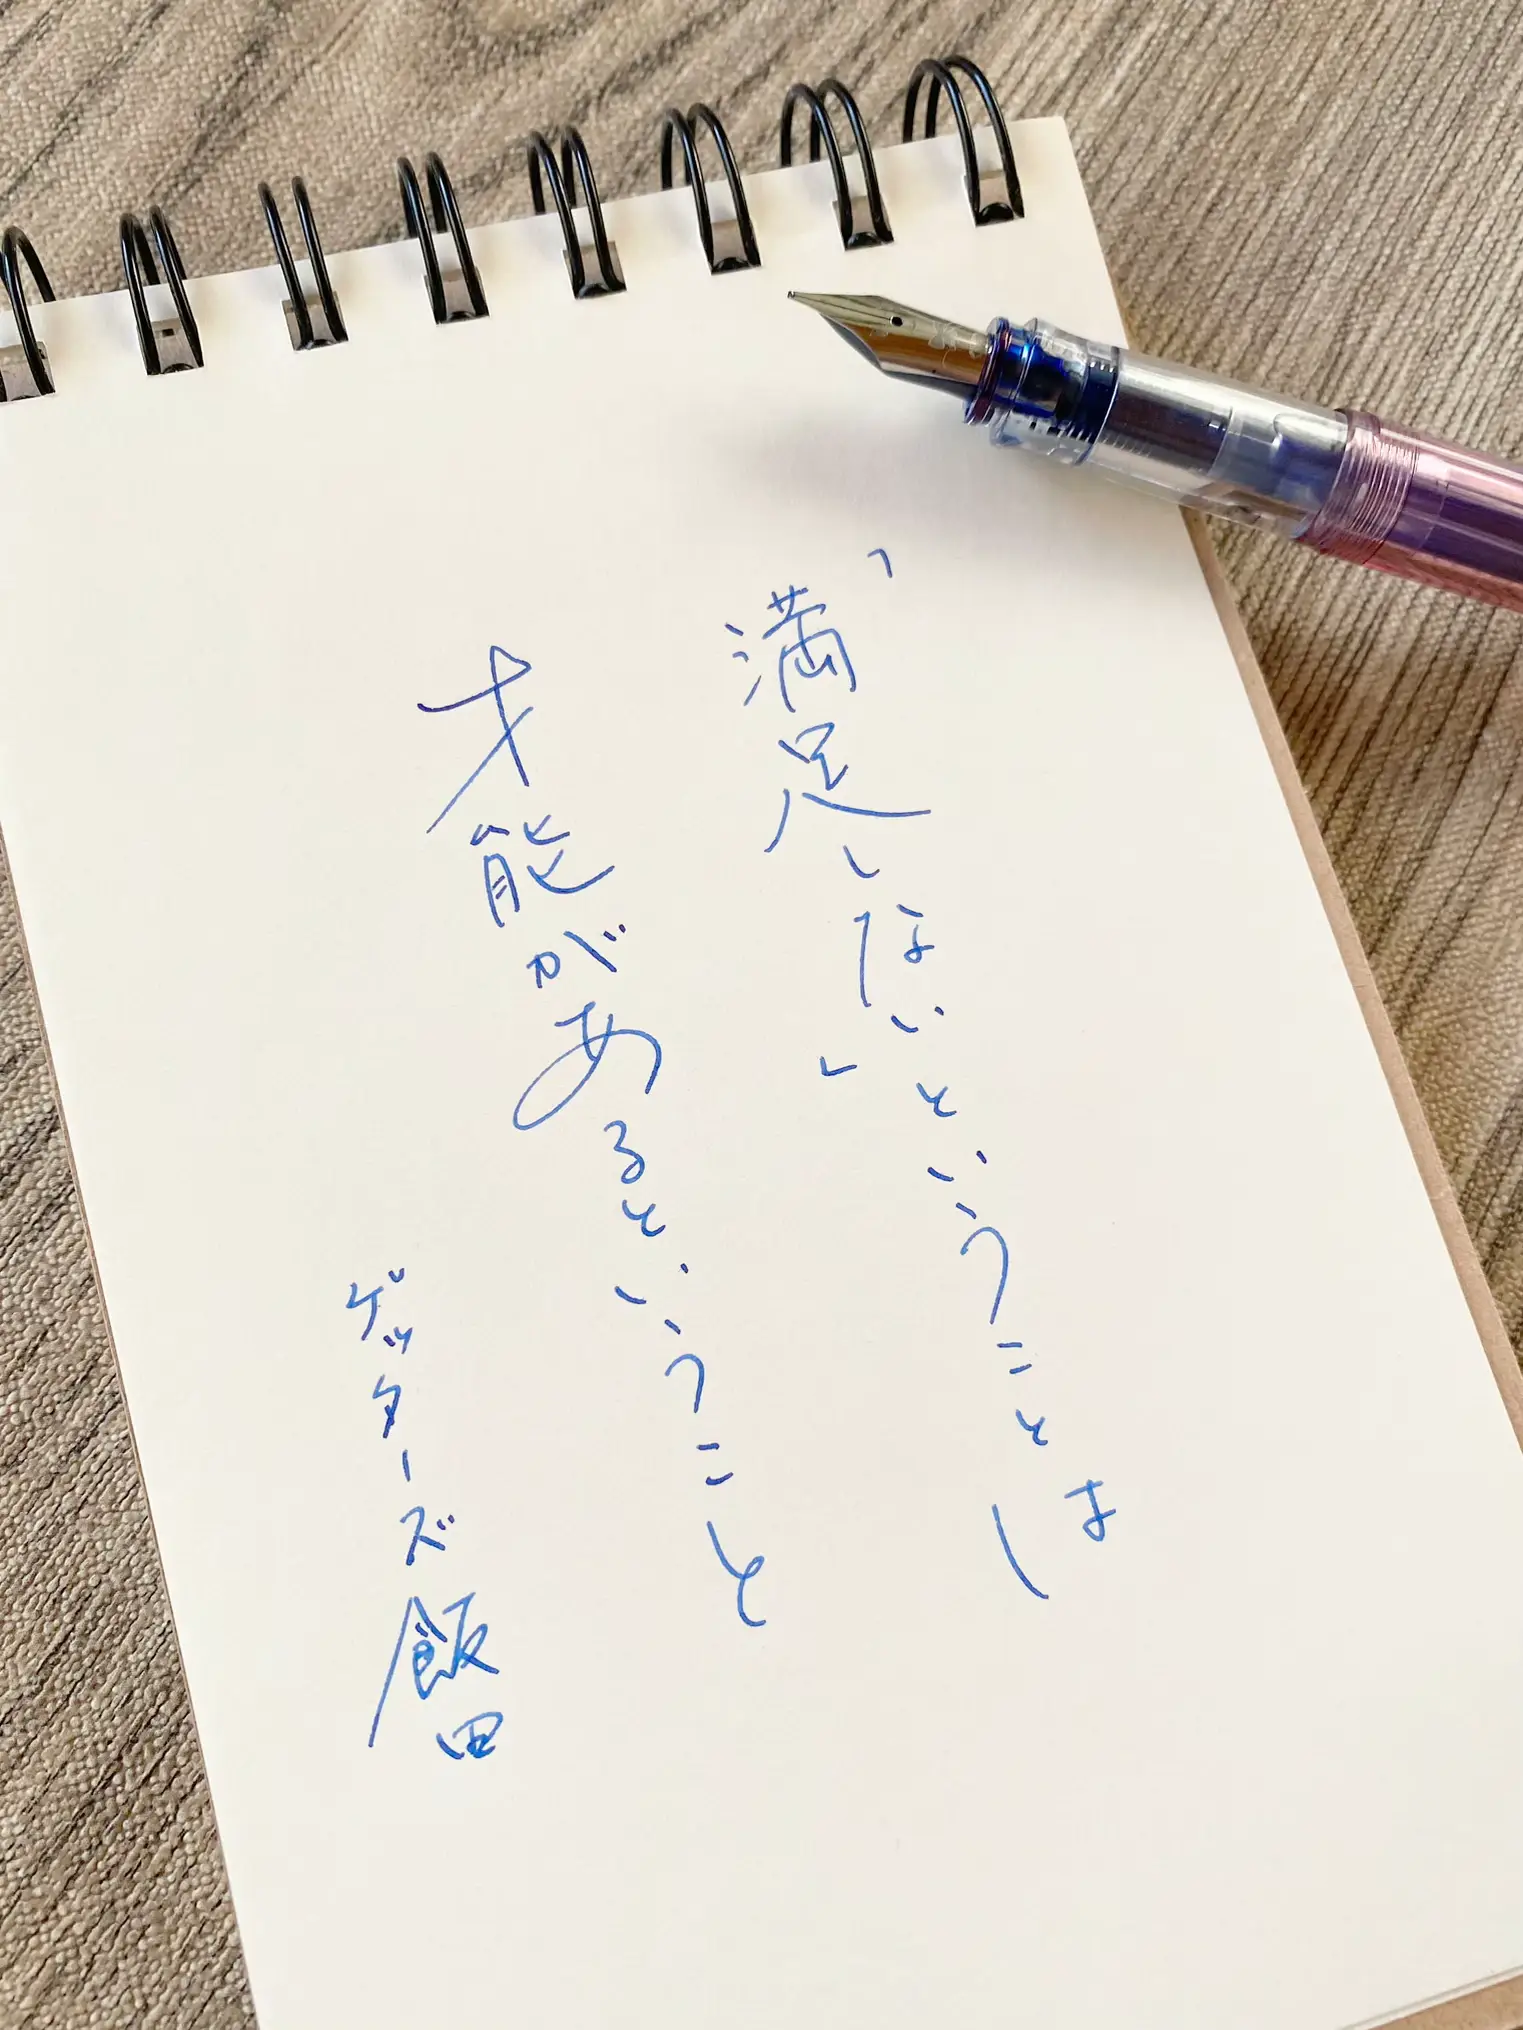 「満足しない」ということは
才能があるということ
ゲッターズ飯田